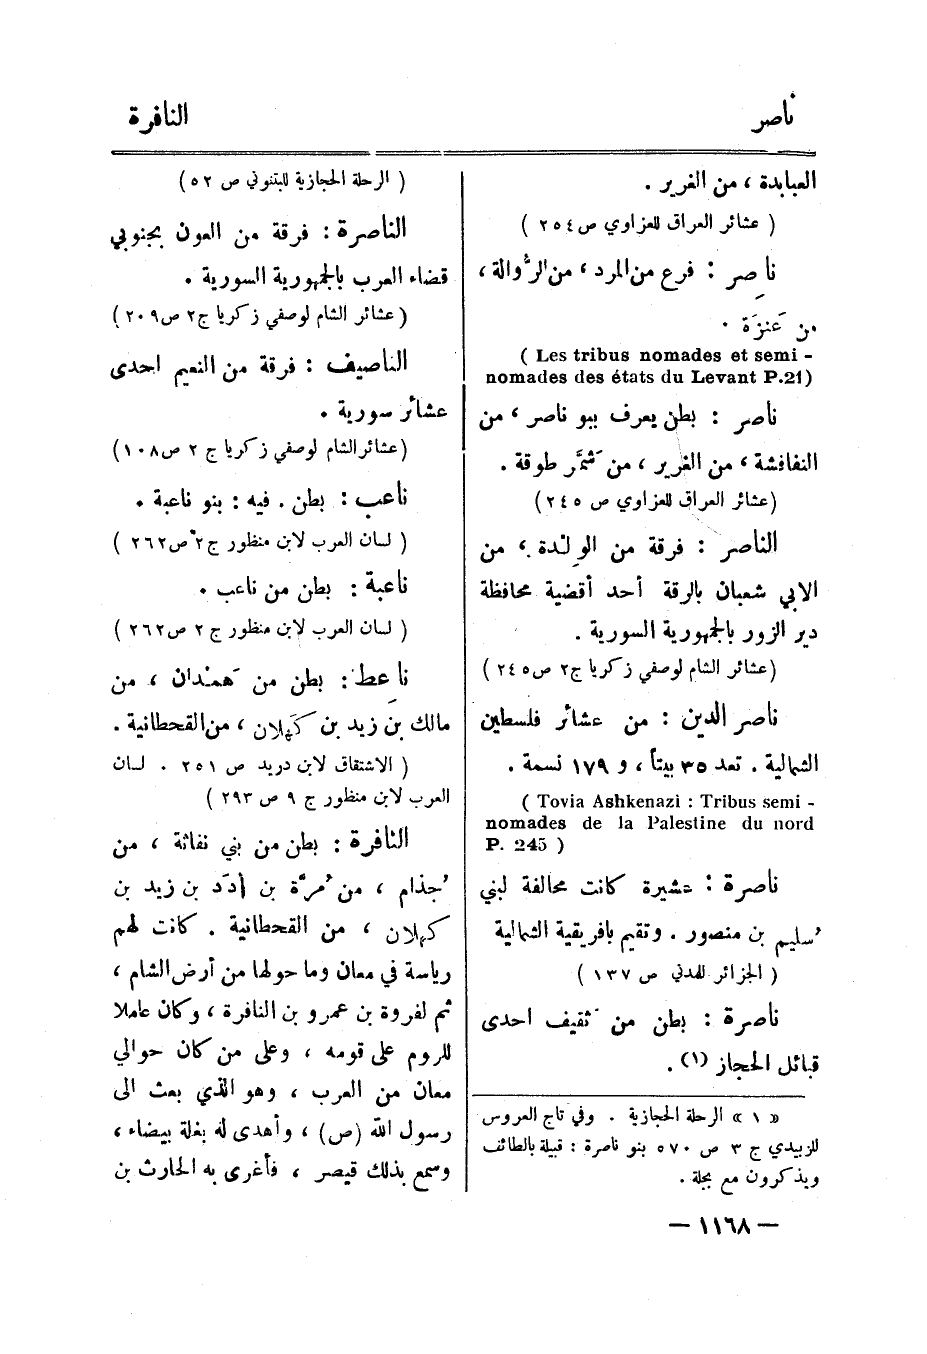 ناصر
النافرة
العبابدة ، من الغرير .
( عشائر العراق للعزاوي ص ٢٥٤ )
ناصِر : فرع من المرد ، من الرُّوالة ،
من عَنِزَة .
( Les tribus nomades et semi -
nomades des états du Levant P.21)
ناصر : بطن يعرف ببو ناصر ، من
النفافشة ، من الغرير ، من شمَّر طوقة .
(عشائر العراق للعزاوي ص ٢٤٥ )
الناصر : فرقة من الولدة ، من
الابي شعبان بالرقة أحد أقضية محافظة
دير الزور بالجمهورية السورية .
(عشائر الشام لوصفي زكريا ج٢ ص٢٤٥ )
ناصر الدين : من عشائر فلسطين
الشمالية . تعد ٣٥ بيتاً ، و ١٧٩ نسمة .
( Tovia Ashkenazi : Tribus semi -
nomades de la Palestine du nord
P. 245 )
ناصرة : عشيرة كانت محالفة لبني
سُليم بن منصور . وتقيم بافريقية الشمالية
( الجزائر للمدني ص ١٣٧ )
ناصرة : بطن من ثقيف احدى
قبائل الحجاز (١) .
« ١ » الرحلة الحجازية . وفي تاج العروس
للزبيدي ج ٣ ص ٥٧٠ بنو ناصرة : قبيلة بالطائف
ويذكرون مع بجلة .
( الرحلة الحجازية للبتنوني ص ٥٢ )
الناصرة : فرقة من العون بجنوبي
قضاء العرب بالجمهورية السورية .
(عشائر الشام لوصفي زكريا ج٢ ص٢٠٩ )
الناصيف : فرقة من النعيم احدى
عشائر سورية .
(عشائر الشام لوصفي زكريا ج ٢ ص١٠٨)
ناعب : بطن . فيه : بنو ناعبة .
( لسان العرب لابن منظور ج٢ ص٢٦٢ )
ناعبة : بطن من ناعب .
( لسان العرب لابن منظور ج ٢ ص٢٦٢ )
ناعِط : بطن من هَمْدان ، من
مالك بن زيد بن كَهلان ، من القحطانية .
( الاشتقاق لابن دريد ص ٢٥١ . لسان
العرب لابن منظور ج ٩ ص ٢٩٣ )
النافرة : بطن من بني نفاثة ، من
جُذام ، من مُرَّة بن أدَد بن زيد بن
كهلان ، من القحطانية . كانت لهم
رياسة في معان وما حولها من أرض الشام ،
ثم لفروة بن عمرو بن النافرة ، وكان عاملا
للروم على قومه ، وعلى من كان حوالي
معان من العرب ، وهو الذي بعث الى
رسول الله (ص) ، وأهدى له بغلة بيضاء ،
وسمع بذلك قيصر ، فأغرى به الحارث بن
— ١١٦٨ —